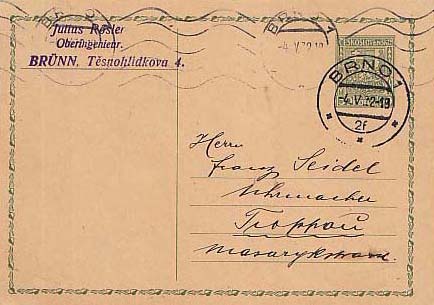 Julius Rösler
Oberingenieur.
BRÜNN, Těsnohlídkova 4.
BRNO 1
-4.V.32-19
ČESKOSLOVENSKO
BRNO 1
-4.V.32-19
2f
Herrn
Franz Seidel
Uhrmacher
Troppau
Masarykstrasse